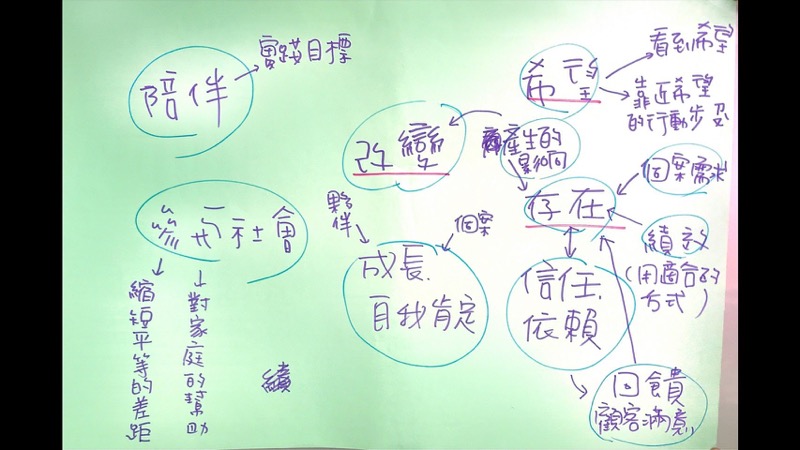 陪伴
實踐目標
希望
看到希望
靠近希望
的行動步
改變
產生的
影响
存在
個案需求
績效
(用適合的
方式)
參與社會
縮短平等的差距
對家庭的幫助
夥伴
個案
成長.
自我肯定
信任.
依賴
回饋
顧客滿意
續